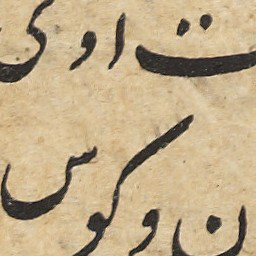 ت اوی
ن وکوس